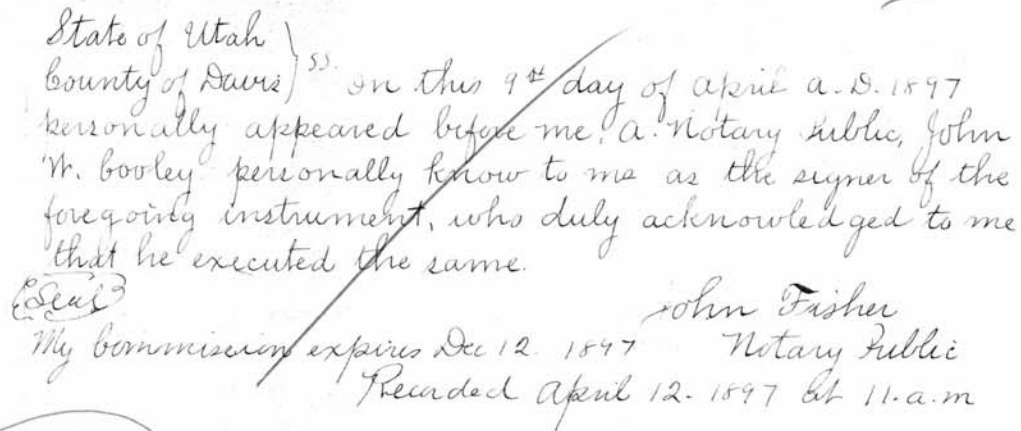 State of Utah
County of Davis } ss. On this 9th day of April A.D. 1897
personally appeared before me, a Notary Public, John
W. Cooley personally know to me as the signer of the
foregoing instrument, who duly acknowledged to me
that he executed the same.
(Seal) John Fisher
My Commission expires Dec 12. 1897 Notary Public
Recorded April 12. 1897 at 11. a.m